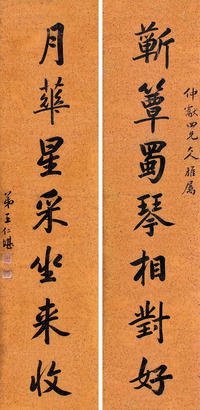 仲獻四兄久雅属
蘄簟蜀琴相對好
月華星采坐来收
弟王仁堪